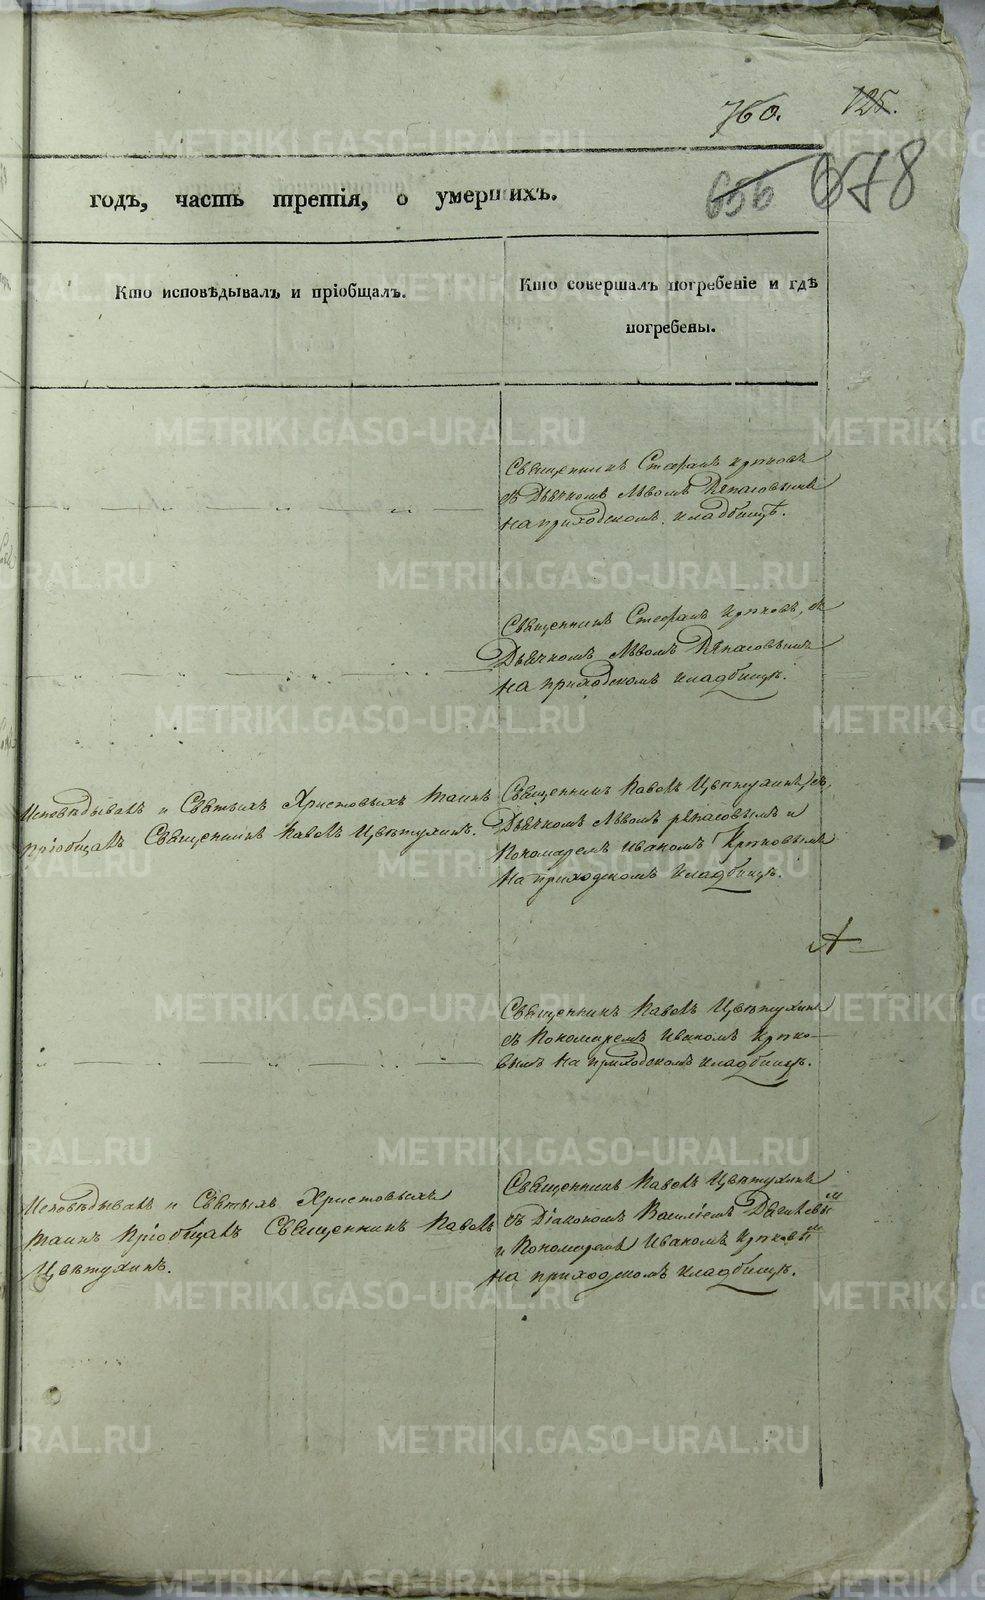 760. 125.
656 678
годъ, часть третія, о умершихъ.
Кто исповѣдывалъ и пріобщалъ.
Кто совершалъ погребеніе и гдѣ
погребены.
Священникъ Стефанъ
съ Дьячкомъ Львомъ
на приходскомъ кладбищѣ.
Священникъ Стефанъ съ
Дьячкомъ Львомъ
на приходскомъ кладбищѣ.
Исповѣдывалъ и Святыхъ Христовыхъ таинъ
пріобщалъ Священникъ Павелъ Цвѣтухинъ.
Священникъ Павелъ Цвѣтухинъ съ
Дьячкомъ Львомъ и
Пономаремъ Иваномъ
на приходскомъ кладбищѣ.
Священникъ Павелъ Цвѣтухинъ
съ Пономаремъ Иваномъ
на приходскомъ кладбищѣ.
Исповѣдывалъ и Святыхъ Христовыхъ
таинъ пріобщалъ Священникъ Павелъ
Цвѣтухинъ.
Священникъ Павелъ Цвѣтухинъ
съ Діакономъ Василіемъ
и Пономаремъ Иваномъ
на приходскомъ кладбищѣ.
METRIKI.GASO-URAL.RU